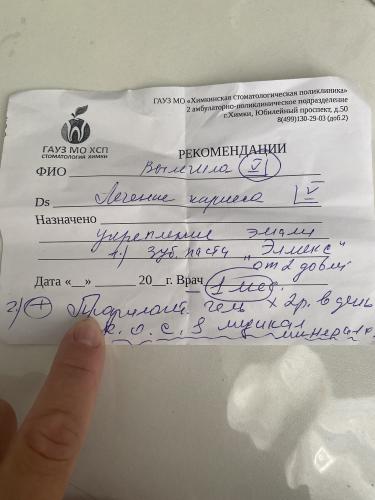 ГАУЗ МО «Химкинская стоматологическая поликлиника»
2 амбулаторно-поликлиническое подразделение
г.Химки, Юбилейный проспект, д.50
8(499)130-29-03 (доб.2)
ГАУЗ МО ХСП
СТОМАТОЛОГИЯ ХИМКИ
РЕКОМЕНДАЦИИ
ФИО Вылечила V
Ds Лечение кариеса V
Назначено
укрепление эмали
1.) Зуб. паста „Элмекс"
от 2 до
Дата «__» 20__г. Врач 1 мес.
2) + гель x 2р. в день
R.O.C.S медикал
минерал